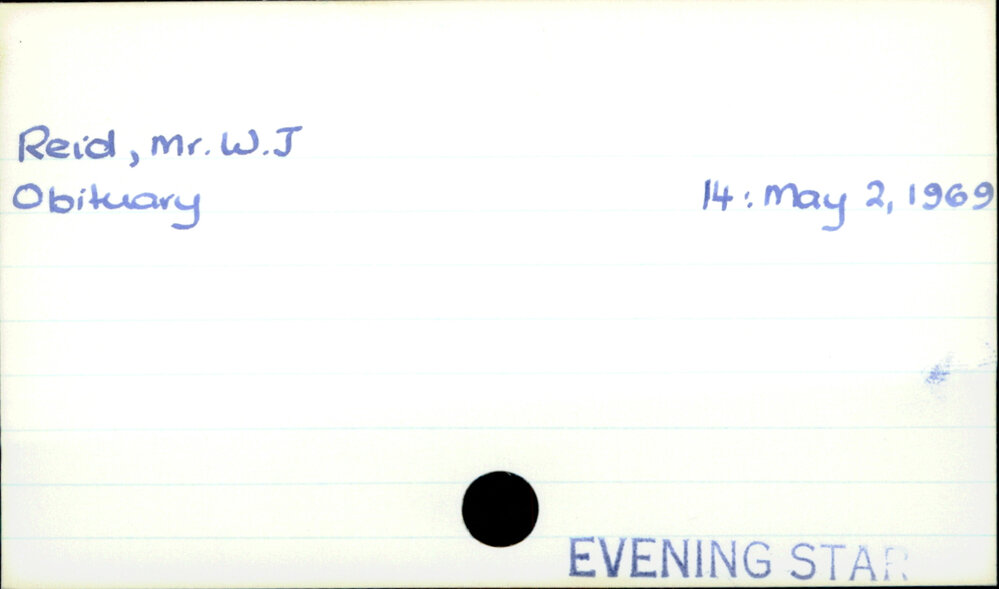 Reid, Mr. W.J
Obituary 14: May 2, 1969
EVENING STAR